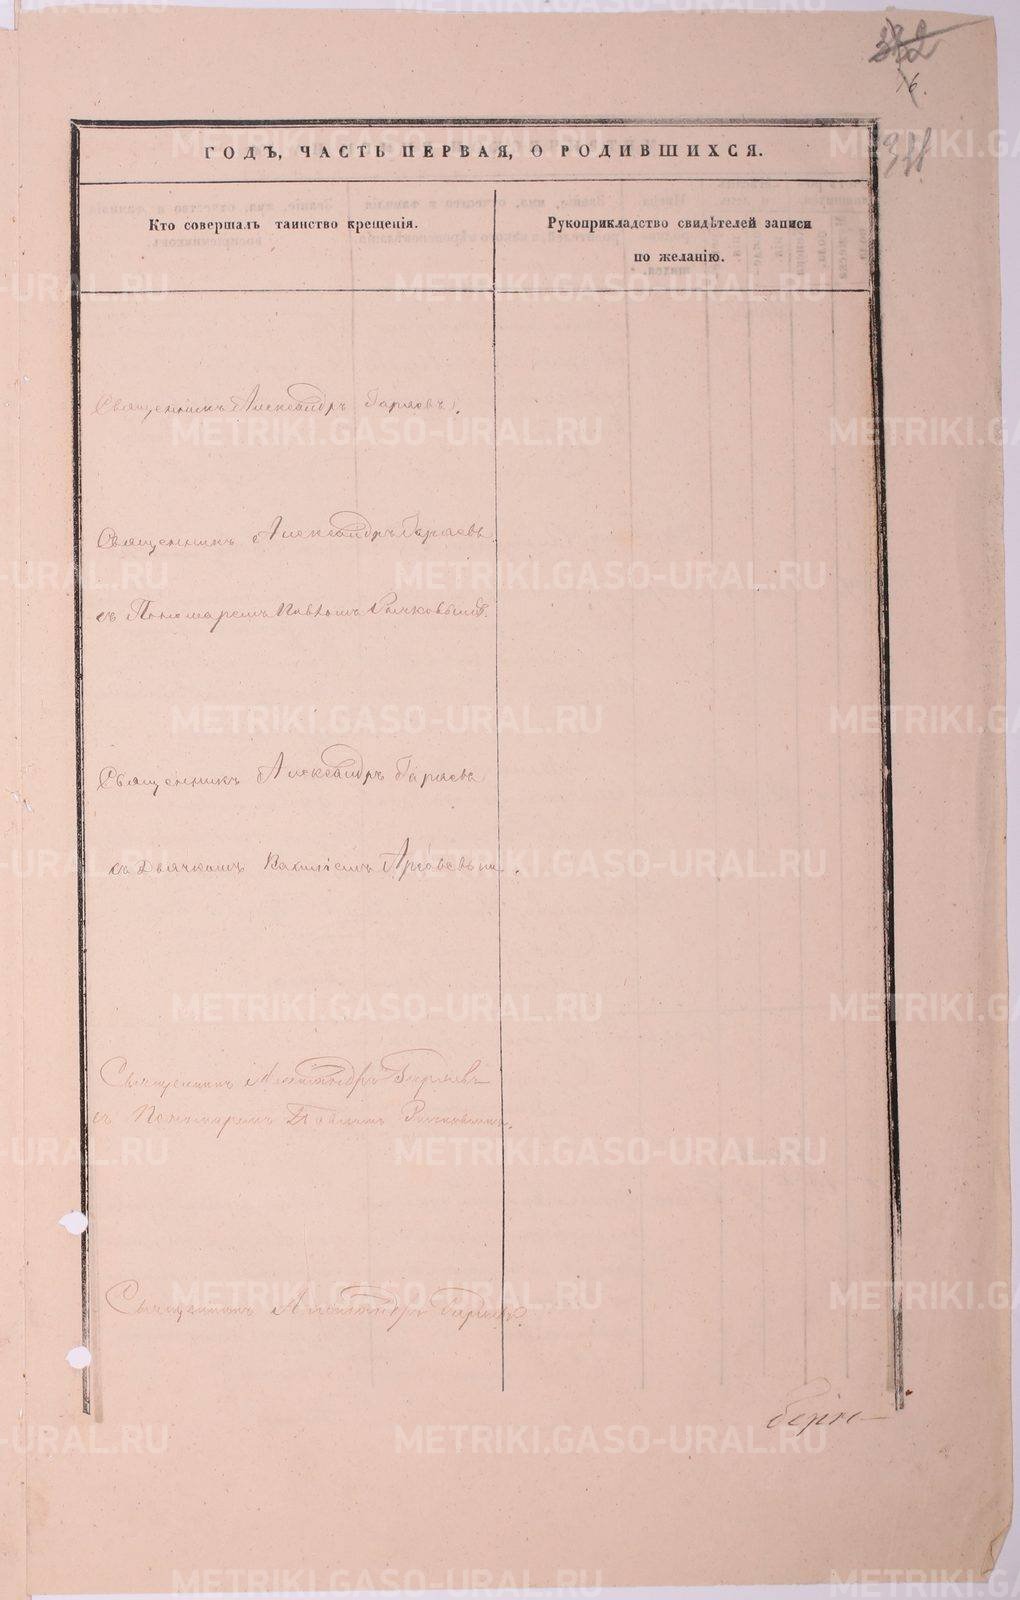 382
16.
ГОДЪ, ЧАСТЬ ПЕРВАЯ, О РОДИВШИХСЯ.
Кто совершалъ таинство крещенія.
Рукоприкладство свидѣтелей записи
по желанію.
Священникъ Александръ Гаряевъ.
Священникъ Александръ Гаряевъ
съ Пономаремъ Павломъ Рычковымъ.
Священникъ Александръ Гаряевъ
съ Дьячкомъ
Священникъ Александръ Гаряевъ
съ Пономаремъ Павломъ Рычковымъ.
Священникъ Александръ Гаряевъ.
METRIKI.GASO-URAL.RU